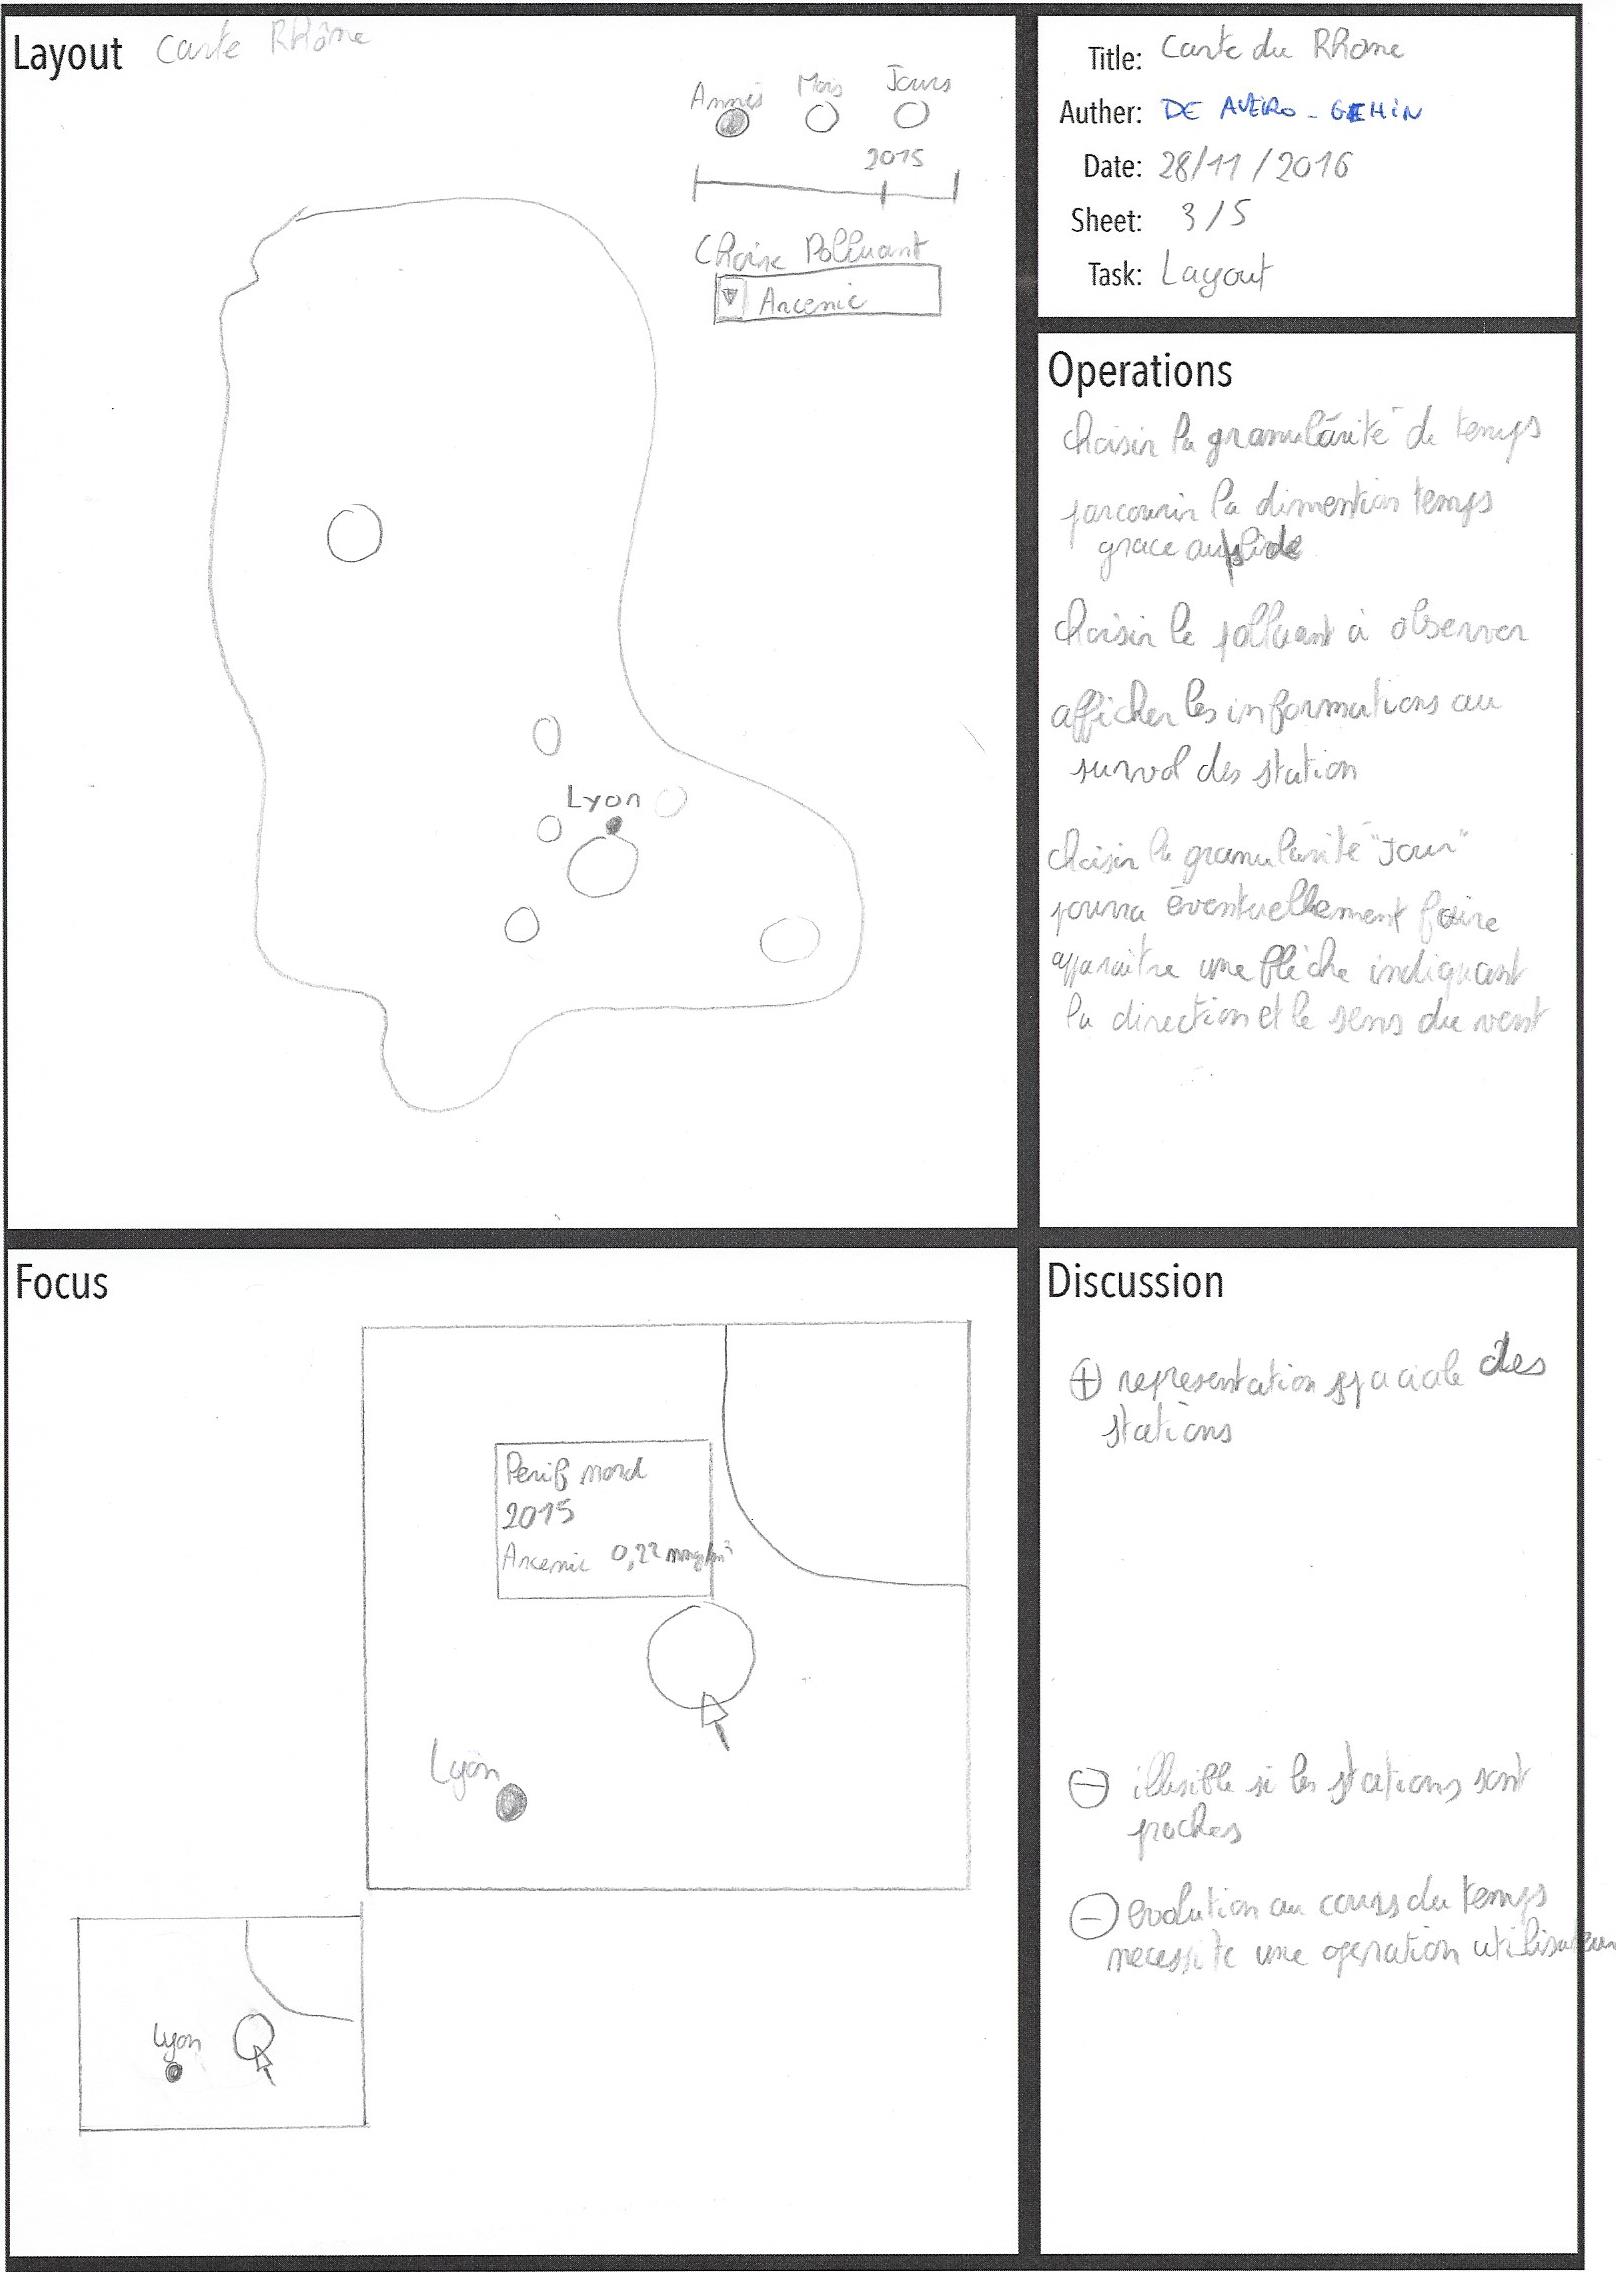 Layout Carte Rhône
Années Mois Jours
2015
Choix Polluant
Arcenic
Lyon
Title: Carte du Rhone
Auther: DE AVEIRO - GEHIN
Date: 28/11/2016
Sheet: 3/5
Task: Layout
Operations
choisir la granularité de temps
parcourir la dimention temps
grace au slide
choisir le polluant à observer
afficher les informations au
survol des station
choisir la granularité "Jour"
pourra éventuellement faire
apparaitre une flèche indiquant
la direction et le sens du vent
Focus
Perif nord
2015
Arcenic 0,22
Lyon
Lyon
Discussion
+ representation spaciale des
stations
- illisible si les stations sont
proches
- evolution au cours du temps
necessite une operation utilisateur